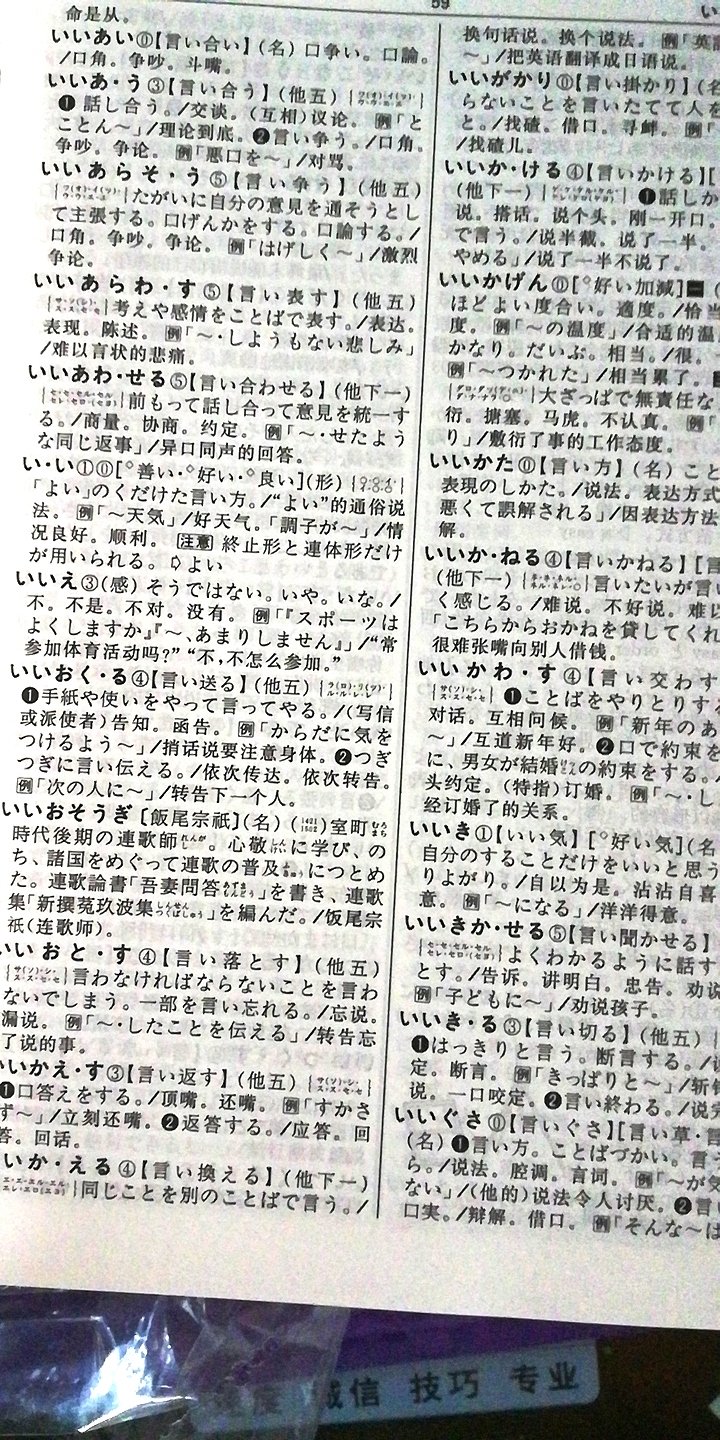 59
命是从。
いいあい⓪【言い合い】(名) 口争い。口論。
/口角。争吵。斗嘴。
いいあ・う③【言い合う】(他五)
❶ 話し合う。/交谈。(互相)议论。例「と
ことん～」/理论到底。❷言い争う。/口角。
争吵。争论。例「悪口を～」/对骂。
いいあらそ・う⑤【言い争う】(他五)
たがいに自分の意見を通そうとし
て主張する。口げんかをする。口論する。/
口角。争吵。争论。例「はげしく～」/激烈
争论。
いいあらわ・す⑤【言い表す】(他五)
考えや感情をことばで表す。/表达。
表现。陈述。例「～・しようもない悲しみ」
/难以言状的悲痛。
いいあわ・せる⑤【言い合わせる】(他下一)
前もって話し合って意見を統一す
る。/商量。协商。约定。例「～・せたよう
な同じ返事」/异口同声的回答。
い・い①⓪[°善い・°好い・°良い](形)
「よい」のくだけた言い方。/“よい”的通俗说
法。例「～天気」/好天气。「調子が～」/情
况良好。顺利。注意 終止形と連体形だけ
が用いられる。⇨よい
いいえ③(感) そうではない。いや。いな。/
不。不是。不对。没有。例「『スポーツは
よくしますか』『～、あまりしません』」/“常
参加体育活动吗?”“不,不怎么参加。”
いいおく・る④【言い送る】(他五)
❶手紙や使いをやって言ってやる。/(写信
或派使者)告知。函告。例「からだに気を
つけるよう～」/捎话说要注意身体。❷つぎ
つぎに言い伝える。/依次传达。依次转告。
例「次の人に～」/转告下一个人。
いいおそうぎ [飯尾宗祇](名) (1421 1502)室町
時代後期の連歌師。心敬に学び、の
ち、諸国をめぐって連歌の普及につとめ
た。連歌論書「吾妻問答」を書き、連歌
集「新撰菟玖波集」を編んだ。/饭尾宗
祇(连歌师)。
いいおと・す④【言い落とす】(他五)
言わなければならないことを言わ
ないでしまう。一部を言い忘れる。/忘说。
漏说。例「～・したことを伝える」/转告忘
了说的事。
いいかえ・す③【言い返す】(他五)
❶口答えをする。/顶嘴。还嘴。例「すかさ
ず～」/立刻还嘴。❷返答する。/应答。回
答。回话。
いいか・える④【言い換える】(他下一)
同じことを別のことばで言う。/
换句话说。换个说法。例「英
～」/把英语翻译成日语说。
いいがかり⓪【言い掛かり】(名
らないことを言いたてて人を
と。/找碴。借口。寻衅。例「
/找碴儿。
いいか・ける④【言いかける】[
(他下一) ❶話しか
说。搭话。说个头。刚一开口。
で言う。/说半截。说了一半。
やめる」/说了一半不说了。
いいかげん⓪【°好い加減】
ほどよい度合い。適度。/恰当
度。例「～の温度」/合适的温
かなり。だいぶ。相当。/很。
例「～つかれた」/相当累了。
大ざっぱで無責任な
衍。搪塞。马虎。不认真。例「
り」/敷衍了事的工作态度。
いいかた⓪【言い方】(名) こと
表現のしかた。/说法。表达方式
悪くて誤解される」/因表达方法
解。
いいか・ねる④【言いかねる】[言
(他下一) 言いたいが言い
く感じる。/难说。不好说。难以
「こちらからおかねを貸してくれ
很难张嘴向别人借钱。
いいかわ・す④【言い交わす
❶ことばをやりとりする
对话。互相问候。例「新年のあ
～」/互道新年好。❷口で約束を
に、男女が結婚の約束をする。/
头约定。(特指)订婚。例「～・し
经订婚了的关系。
いいき①【いい気】[°好い気](名
自分のすることだけをいいと思う
りよがり。/自以为是。沾沾自喜
意。例「～になる」/洋洋得意。
いいきか・せる⑤【言い聞かせる】
よくわかるように話す
とす。/告诉。讲明白。忠告。劝说
例「子どもに～」/劝说孩子。
いいき・る③【言い切る】(他五)
❶はっきりと言う。断言する。/
定。断言。例「きっぱりと～」/斩
说。一口咬定。❷言い終わる。/说
いいぐさ⓪【言いぐさ】[言い草・言
(名) ❶言い方。ことばづかい。言
ら。/说法。腔调。言词。例「～が気
ない」/(他的)说法令人讨厌。❷言い
口実。/辩解。借口。例「そんな～は
诚信 技巧 专业